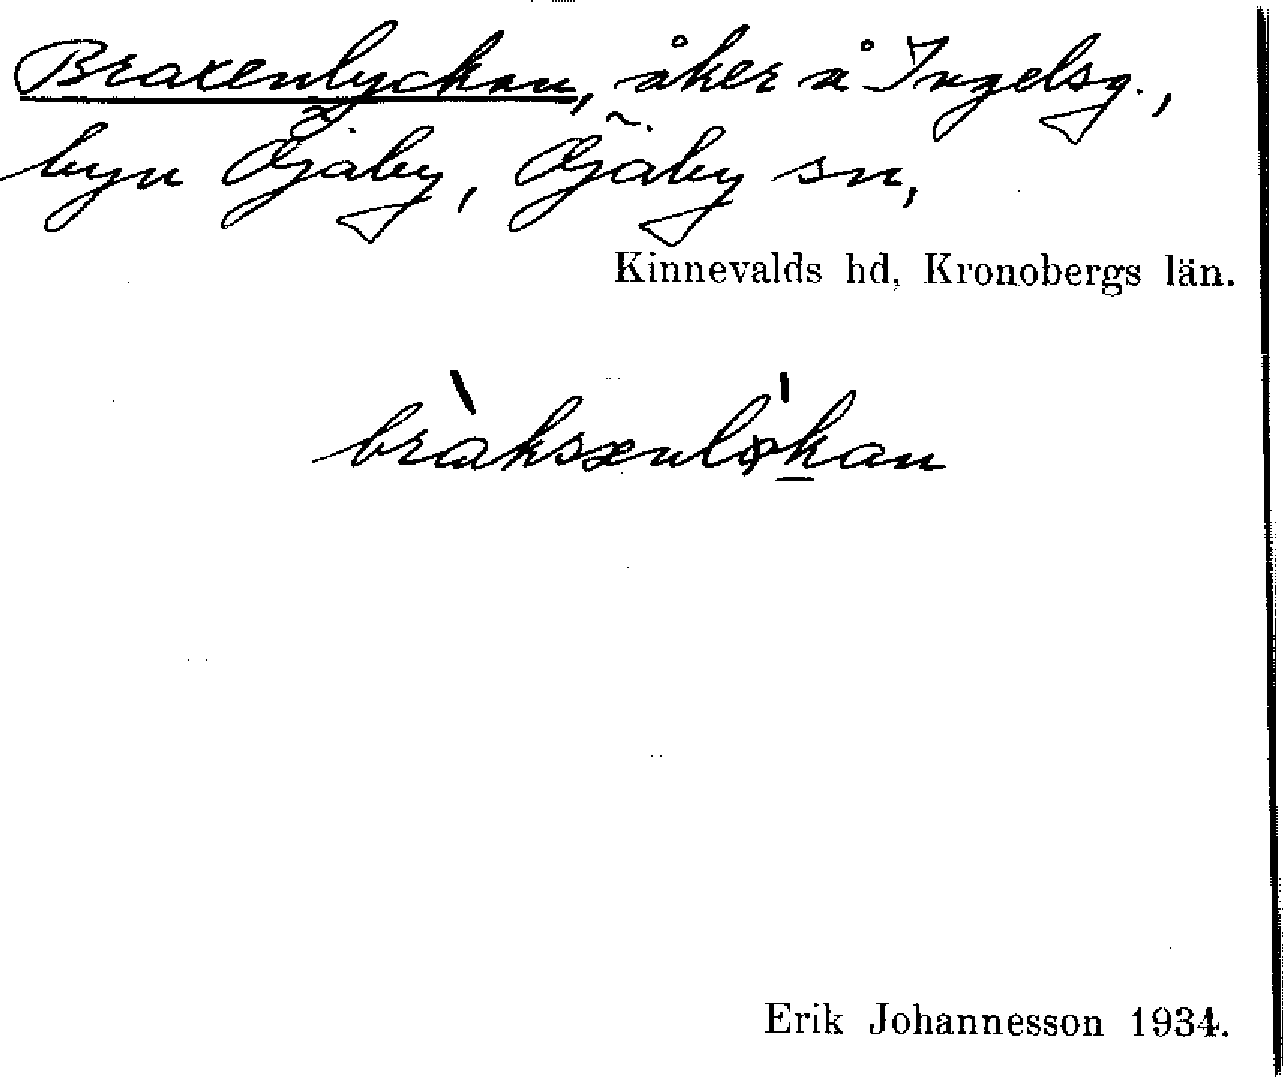 Braxenlyckan, åker å Ingelsg.,
byn Öjaby, Öjaby sn,
Kinnevalds hd, Kronobergs län.
bràksxnlökan
Erik Johannesson 1934.